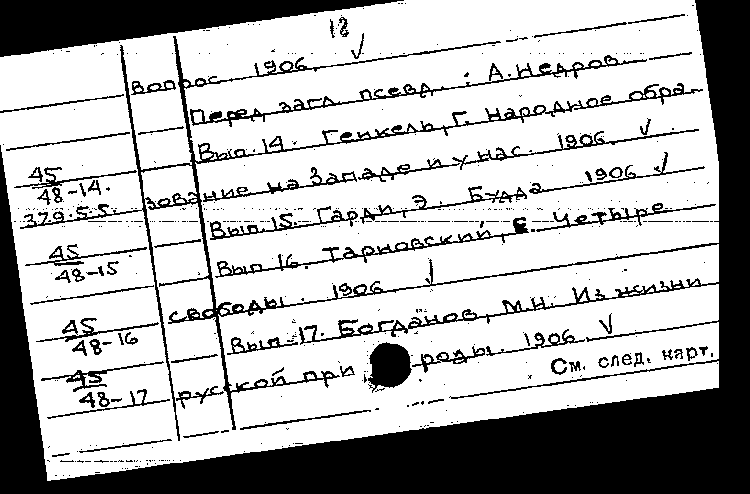 18
вопрос. 1906. ✓
Перед загл. псевд.: А. Недров.
Вып. 14. Генкель, Г. Народное обра-
45
48-14.
зование на Западе и у нас. 1906. ✓
379.5.5.
Вып. 15. Гарди, Э. Будда. 1906 ✓
45
48-15
Вып. 16. Тарновский, Е. Четыре
свободы. 1906. ✓
45
48-16
Вып. 17. Богданов, М.Н. Из жизни
45
48-17
русской природы. 1906. ✓
См. след. карт.